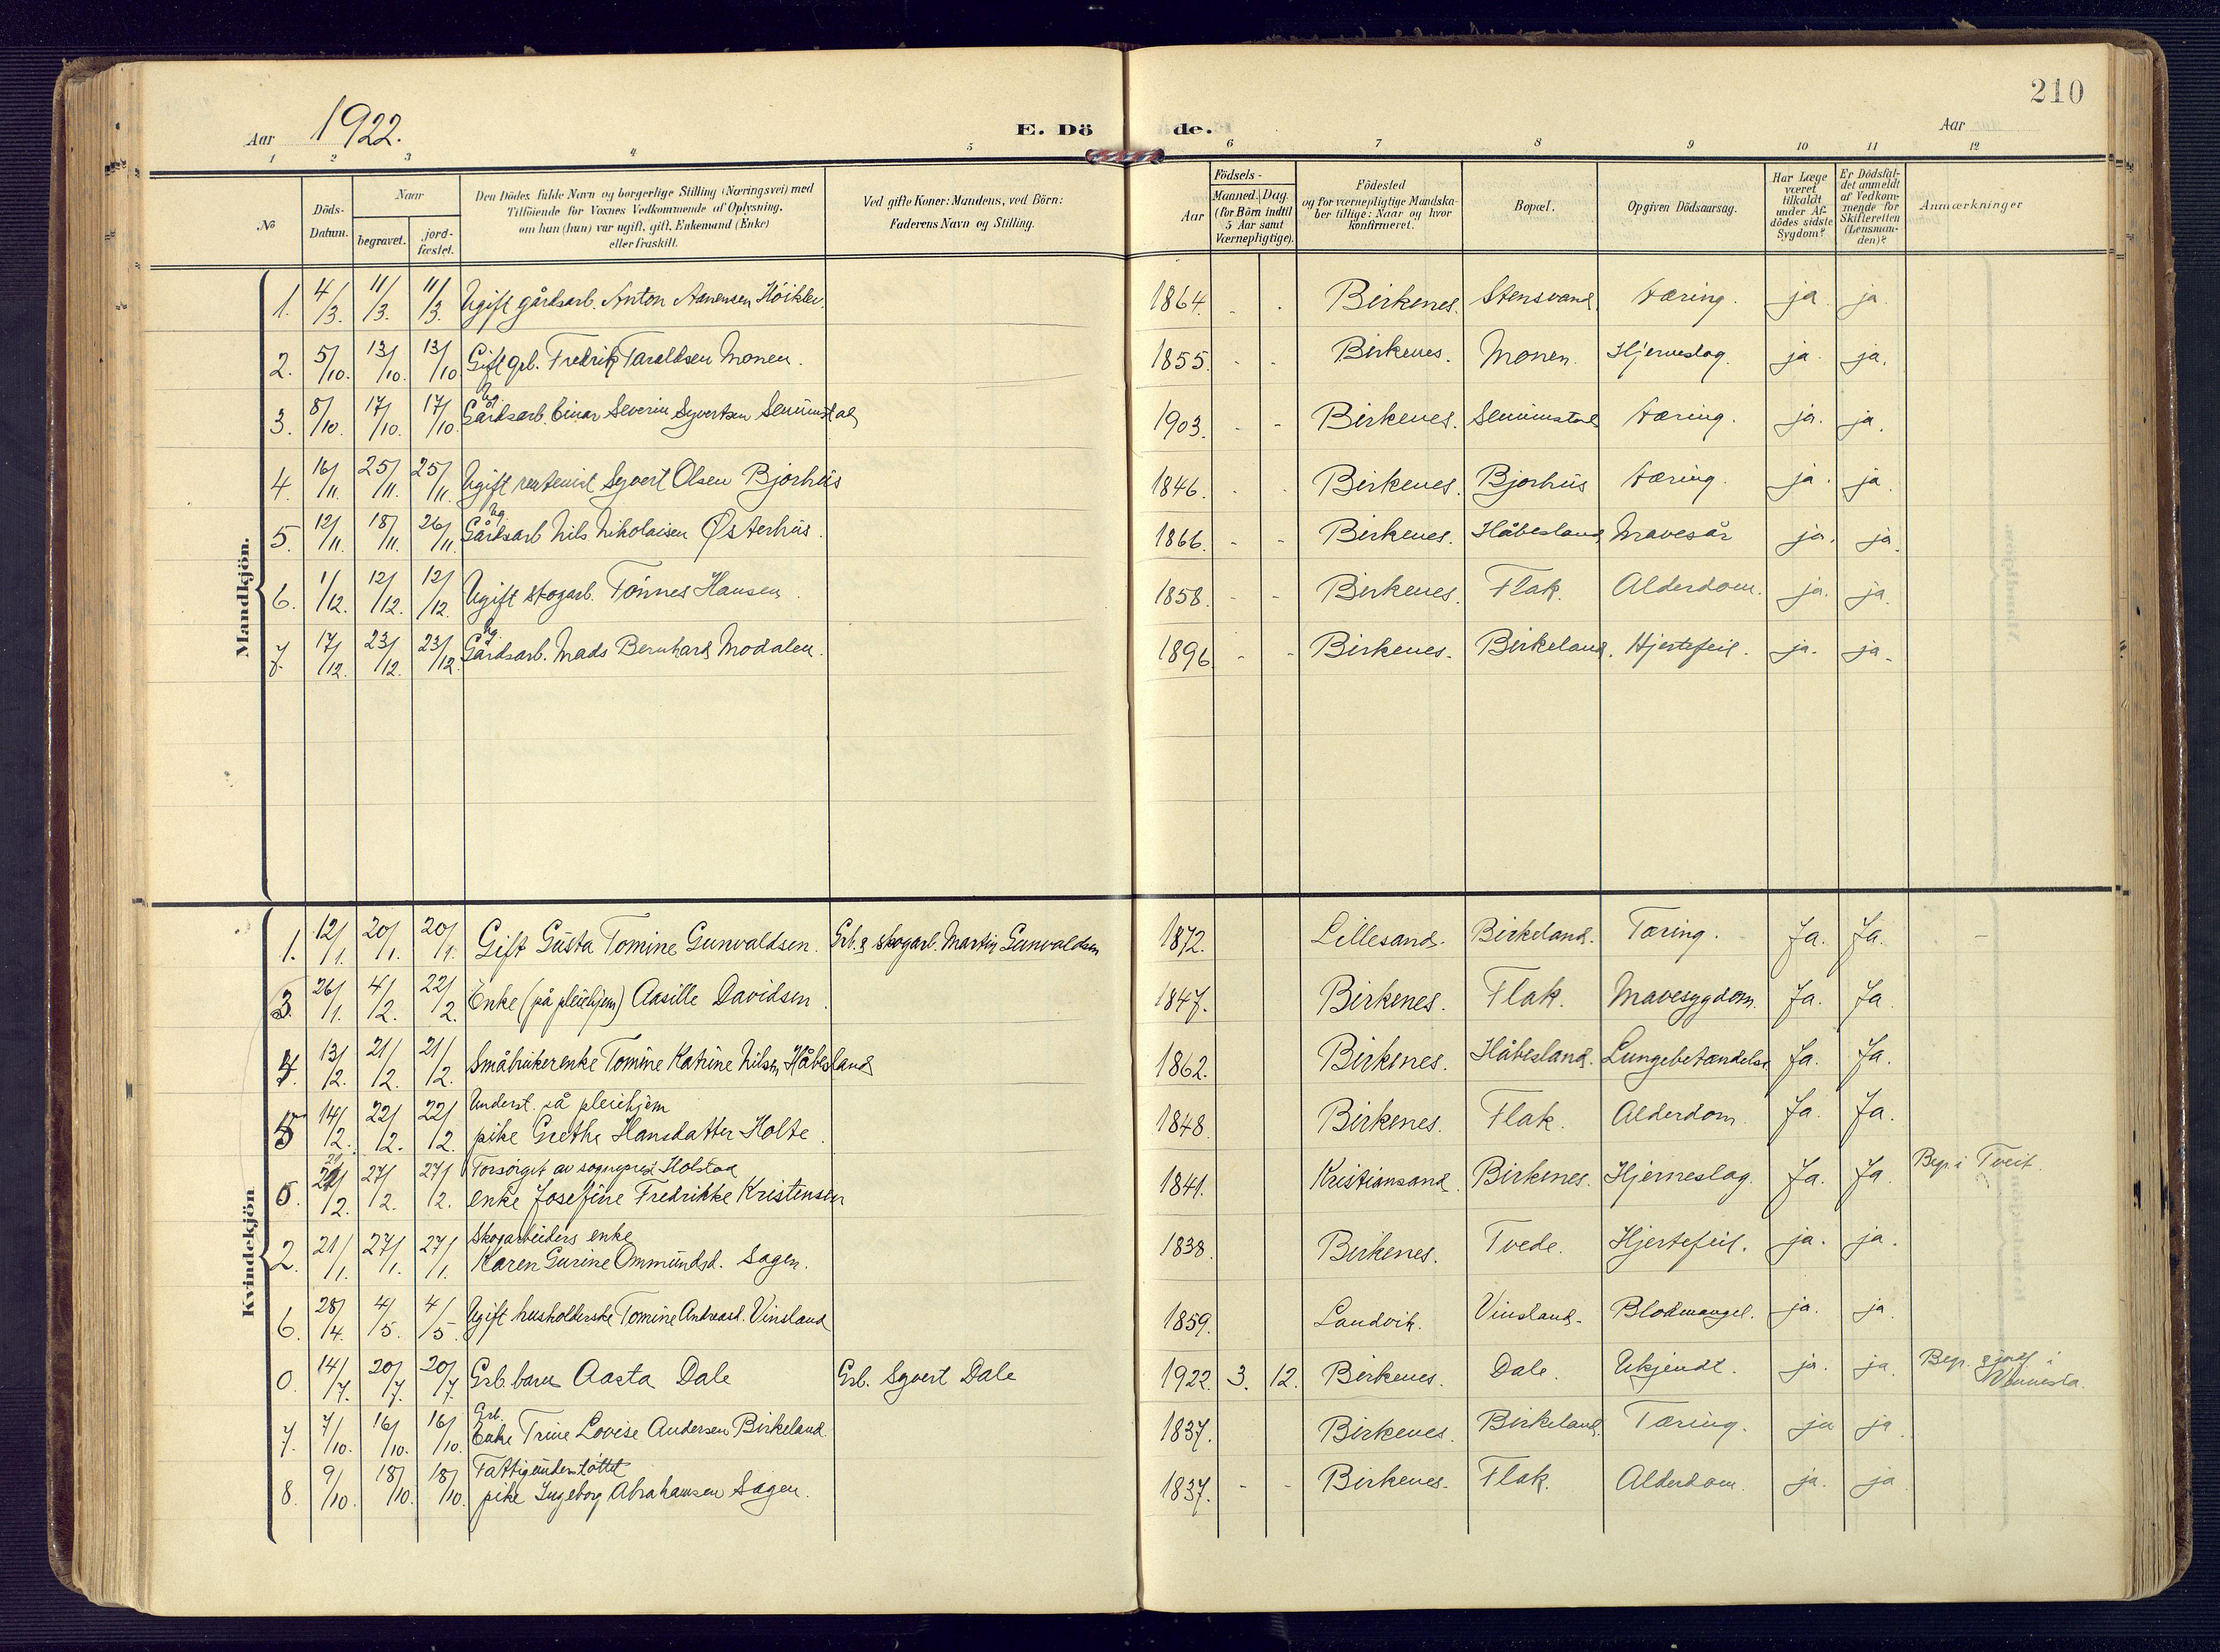 210
Aar 1922.
E. Dö de.
Aar
1 2 3 4 5 6 7 8 9 10 11 12
№
Döds-
Datum.
Naar
begravet.
jord-
fæstet.
Den Dödes fulde Navn og borgerlige Stilling (Næringsvei) med
Tilföiende for Voxnes Vedkommende af Oplysning,
om han (hun) var ugift, gift, Enkemand (Enke)
eller fraskilt.
Ved gifte Koner: Mandens, ved Börn:
Faderens Navn og Stilling.
Födsels-
Aar
Maaned. Dag.
(for Börn indtil
5 Aar samt
Værnepligtige).
Födested
og for værnepligtige Mandska-
ber tillige: Naar og hvor
konfirmeret.
Bopæl.
Opgiven Dödsaarsag.
Har Læge
været
tilkaldt
under Af-
dödes sidste
Sygdom?
Er Dödsfal-
det anmeldt
af Vedkom-
mende for
Skifteretten
(Lensman-
den)?
Anmærkninger
Mandkjön.
1. 4/3. 11/3. 11/3. Ugift gårdsarb. Anton Aanensen Höiklev. 1864. - . Birkenes. Stensvand. tæring. ja. ja.
2. 5/10. 13/10. 13/10 Gift gb. Fredrik Taraldsen Monen. 1855. - - Birkenes. Monen. Hjerneslag. ja. ja.
ug.
3. 8/10. 17/10. 17/10. Gårdsarb. Einar Severin Syvertsen Senumstad 1903. - - Birkenes. Senumstad tæring. ja. ja.
4. 16/11. 25/11. 25/11. Ugift rentenist Syvert Olsen Bjorhus 1846. . . Birkenes. Bjorhus tæring. ja. ja.
ug.
5. 12/11. 18/11. 26/11. Gårdsarb Nils Nikolaisen Østerhus. 1866. - - Birkenes. Håbesland Mavesår ja. ja.
6. 1/12. 12/12. 12/12. Ugift skogarb. Tönnes Hansen. 1858. - - Birkenes. Flak. Alderdom. ja. ja.
ug.
7. 17/12. 23/12. 23/12. Gårdsarb. Mads Bernhard Modalen. 1896 - - Birkenes. Birkeland. Hjertefeil. ja. ja.
Kvindekjön
1. 12/1. 20/1. 20/1. Gift Gusta Tomine Gunvaldsen. Grb. & skogarb. Martin Gunvaldsen 1872. Lillesand. Birkeland. Tæring. Ja. Ja. -
3. 26/1. 4/2. 22/2. Enke (på pleiehjem) Aasille Davidsen. 1847. Birkenes. Flak. Mavesygdom. Ja. Ja
4. 13/2. 21/2. 21/2. Småbrukerenke Tomine Katrine Nilsen Håbesland 1862. Birkenes. Håbesland. Lungebetændelse Ja. Ja.
Underst. på pleiehjem
5 14/2. 22/2. 22/2 pike Grethe Hansdatter Holte. 1848 Birkenes. Flak. Alderdom. Ja. Ja.
Forsörget av sogneprest Holstad
0. 2. 27/2. 27/2. enke Josefine Fredrikke Kristensen 1841. Kristiansand. Birkenes. Hjerneslag. Ja. Ja. Begr. i Tveit.
Skogarbeiders enke
2. 21/1. 27/1. 27/1. Karen Gurine Ommundsd. Sagen. 1838. Birkenes. Tvede. Hjertefeil. ja. ja.
6. 28/4. 4/5. 4/5. Ugift husholderske Tomine Andreasd. Vinsland 1859. Landvik. Vinsland. Blodmangel. ja. ja
0. 14/7. 20/7. 20/7. Grb. barn Aasta Dale Grb. Syvert Dale 1922. 3. 12. Birkenes. Dale. Ukjendt. ja. ja Begr. & jordf. i
Vennesla.
Grb.
7. 7/10. 16/10. 16/10. Enke Trine Lovise Andersen Birkeland. 1837. Birkenes. Birkeland. Tæring. ja ja.
Fattigunderstöttet
8. 9/10. 18/10. 18/10. pike Ingeborg Abrahamsen Sagen. 1837. - - Birkenes. Flak. Alderdom. ja. ja